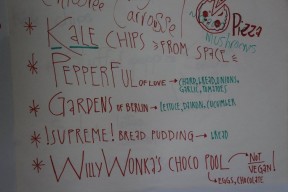 Pizza
mushrooms
* KALE CHIPS > FROM SPACE <
* PEPPERFUL OF LOVE → CHARD, BREAD, ONIONS,
GARLIC, TOMATOES
* GARDENS OF BERLIN → LETTUCE, DAIKON, CUCUMBER
* !SUPREME! BREAD PUDDING → BREAD
* WILLY WONKA'S CHOCO POOL → NOT VEGAN!
↳ EGGS, CHOCOLATE